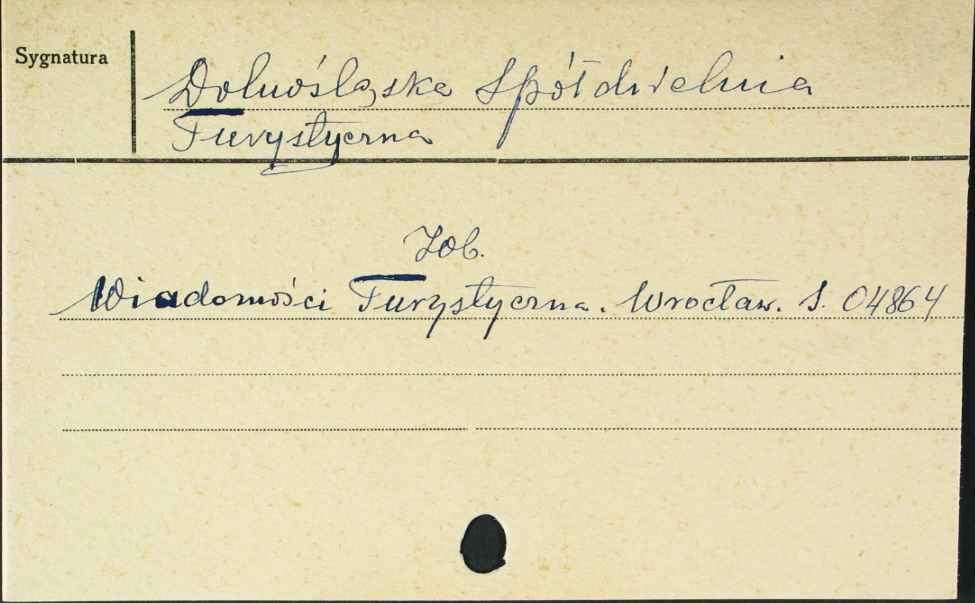 Sygnatura
Dolnośląska Spółdzielnia
Turystyczna
Zob.
Wiadomości Turystyczne. Wrocław. S. 04864